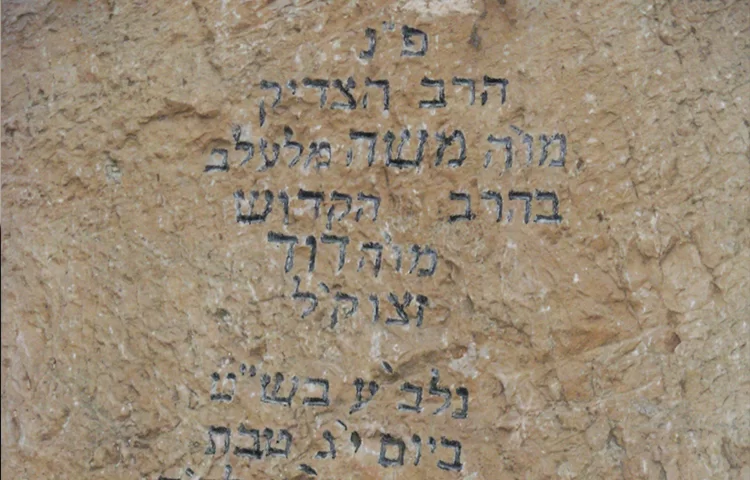 פ"נ
הרב הצדיק
מו'ה משה מלעלב
בהרב הקדוש
מו'ה דוד
זצוק'ל
נלב'ע בש"ט
ביום י'ג טבת